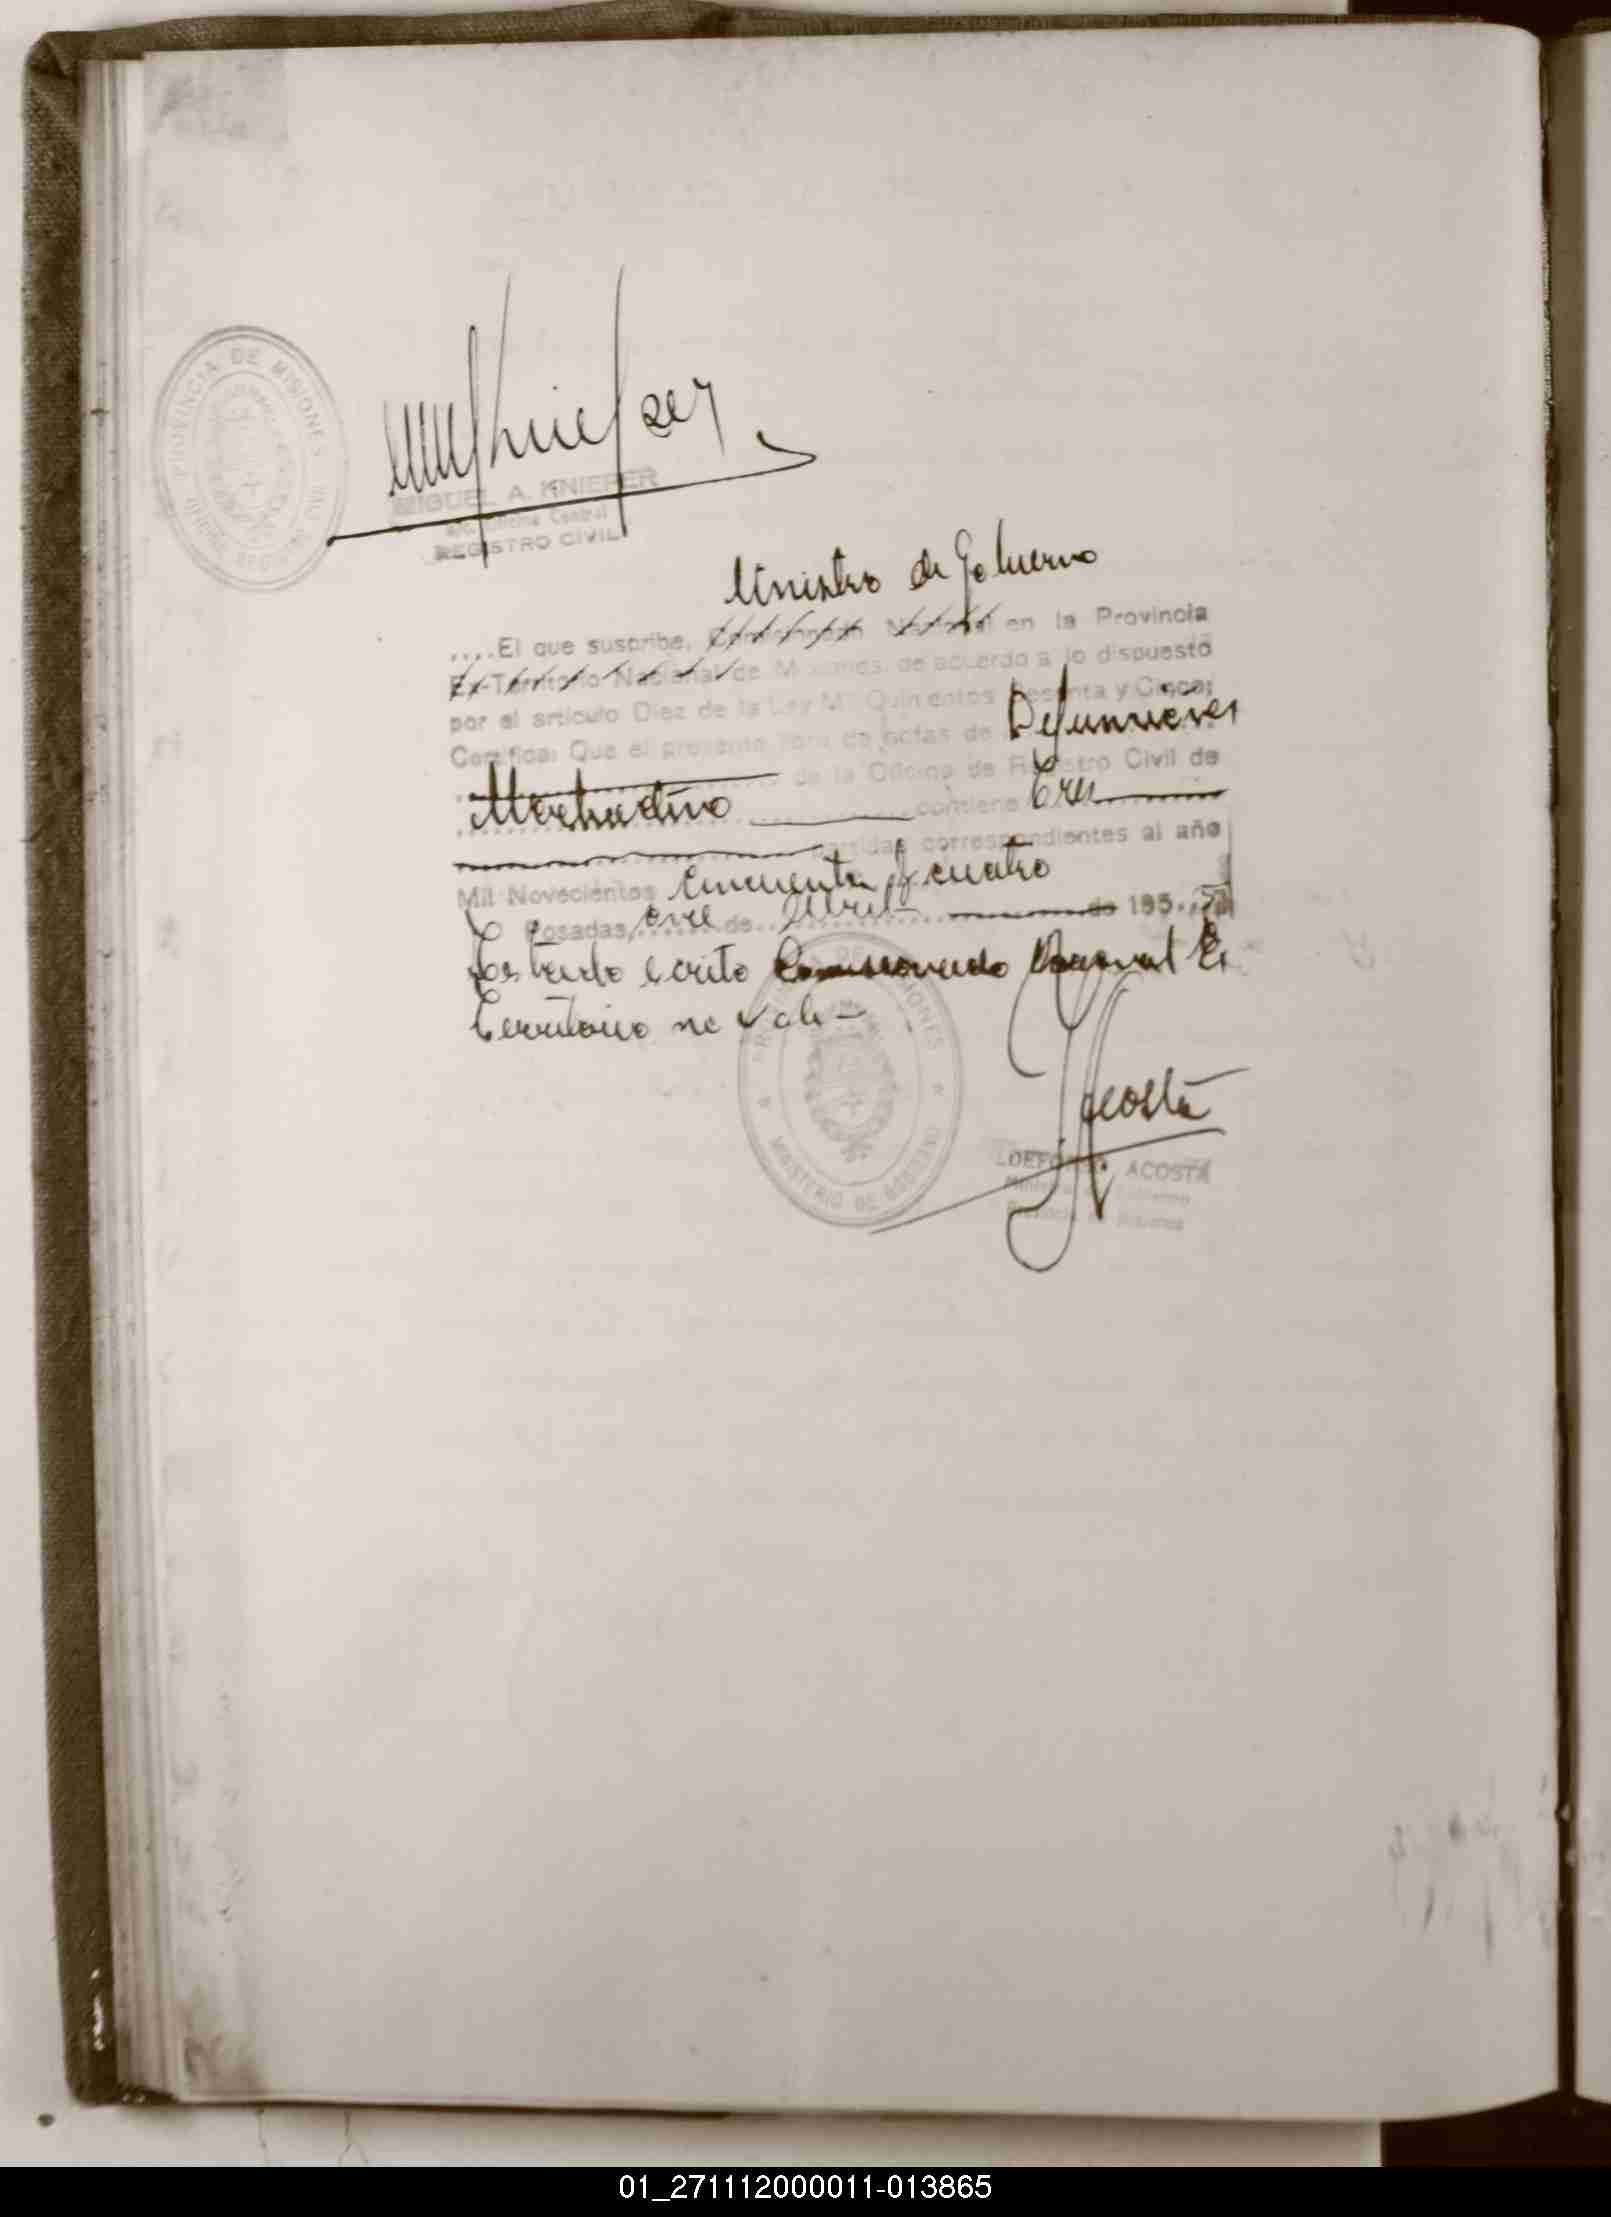 PROVINCIA DE MISIONES
MIGUEL A. KNIEPER
Oficina Central
REGISTRO CIVIL
Ministro de Gobierno
....El que suscribe, Comisionado Nacional en la Provincia
Ex-Territorio Nacional de Misiones, de acuerdo a lo dispuesto
por el artículo Diez de la Ley Mil Quinientos Sesenta y Cinco;
Certifica: Que el presente libro de actas de Defunciones
de la Oficina de Registro Civil de
contiene tres
partidas correspondientes al año
Mil Novecientos Cincuenta y cuatro
Posadas, once de Abril de 195
Los testado escrito Comisionado Nacional Ex
Territorio no vale -
PROVINCIA DE MISIONES
MINISTERIO DE GOBIERNO
Acosta
ILDEFONSO ACOSTA
Ministro de Gobierno
Provincia de Misiones
01_271112000011-013865